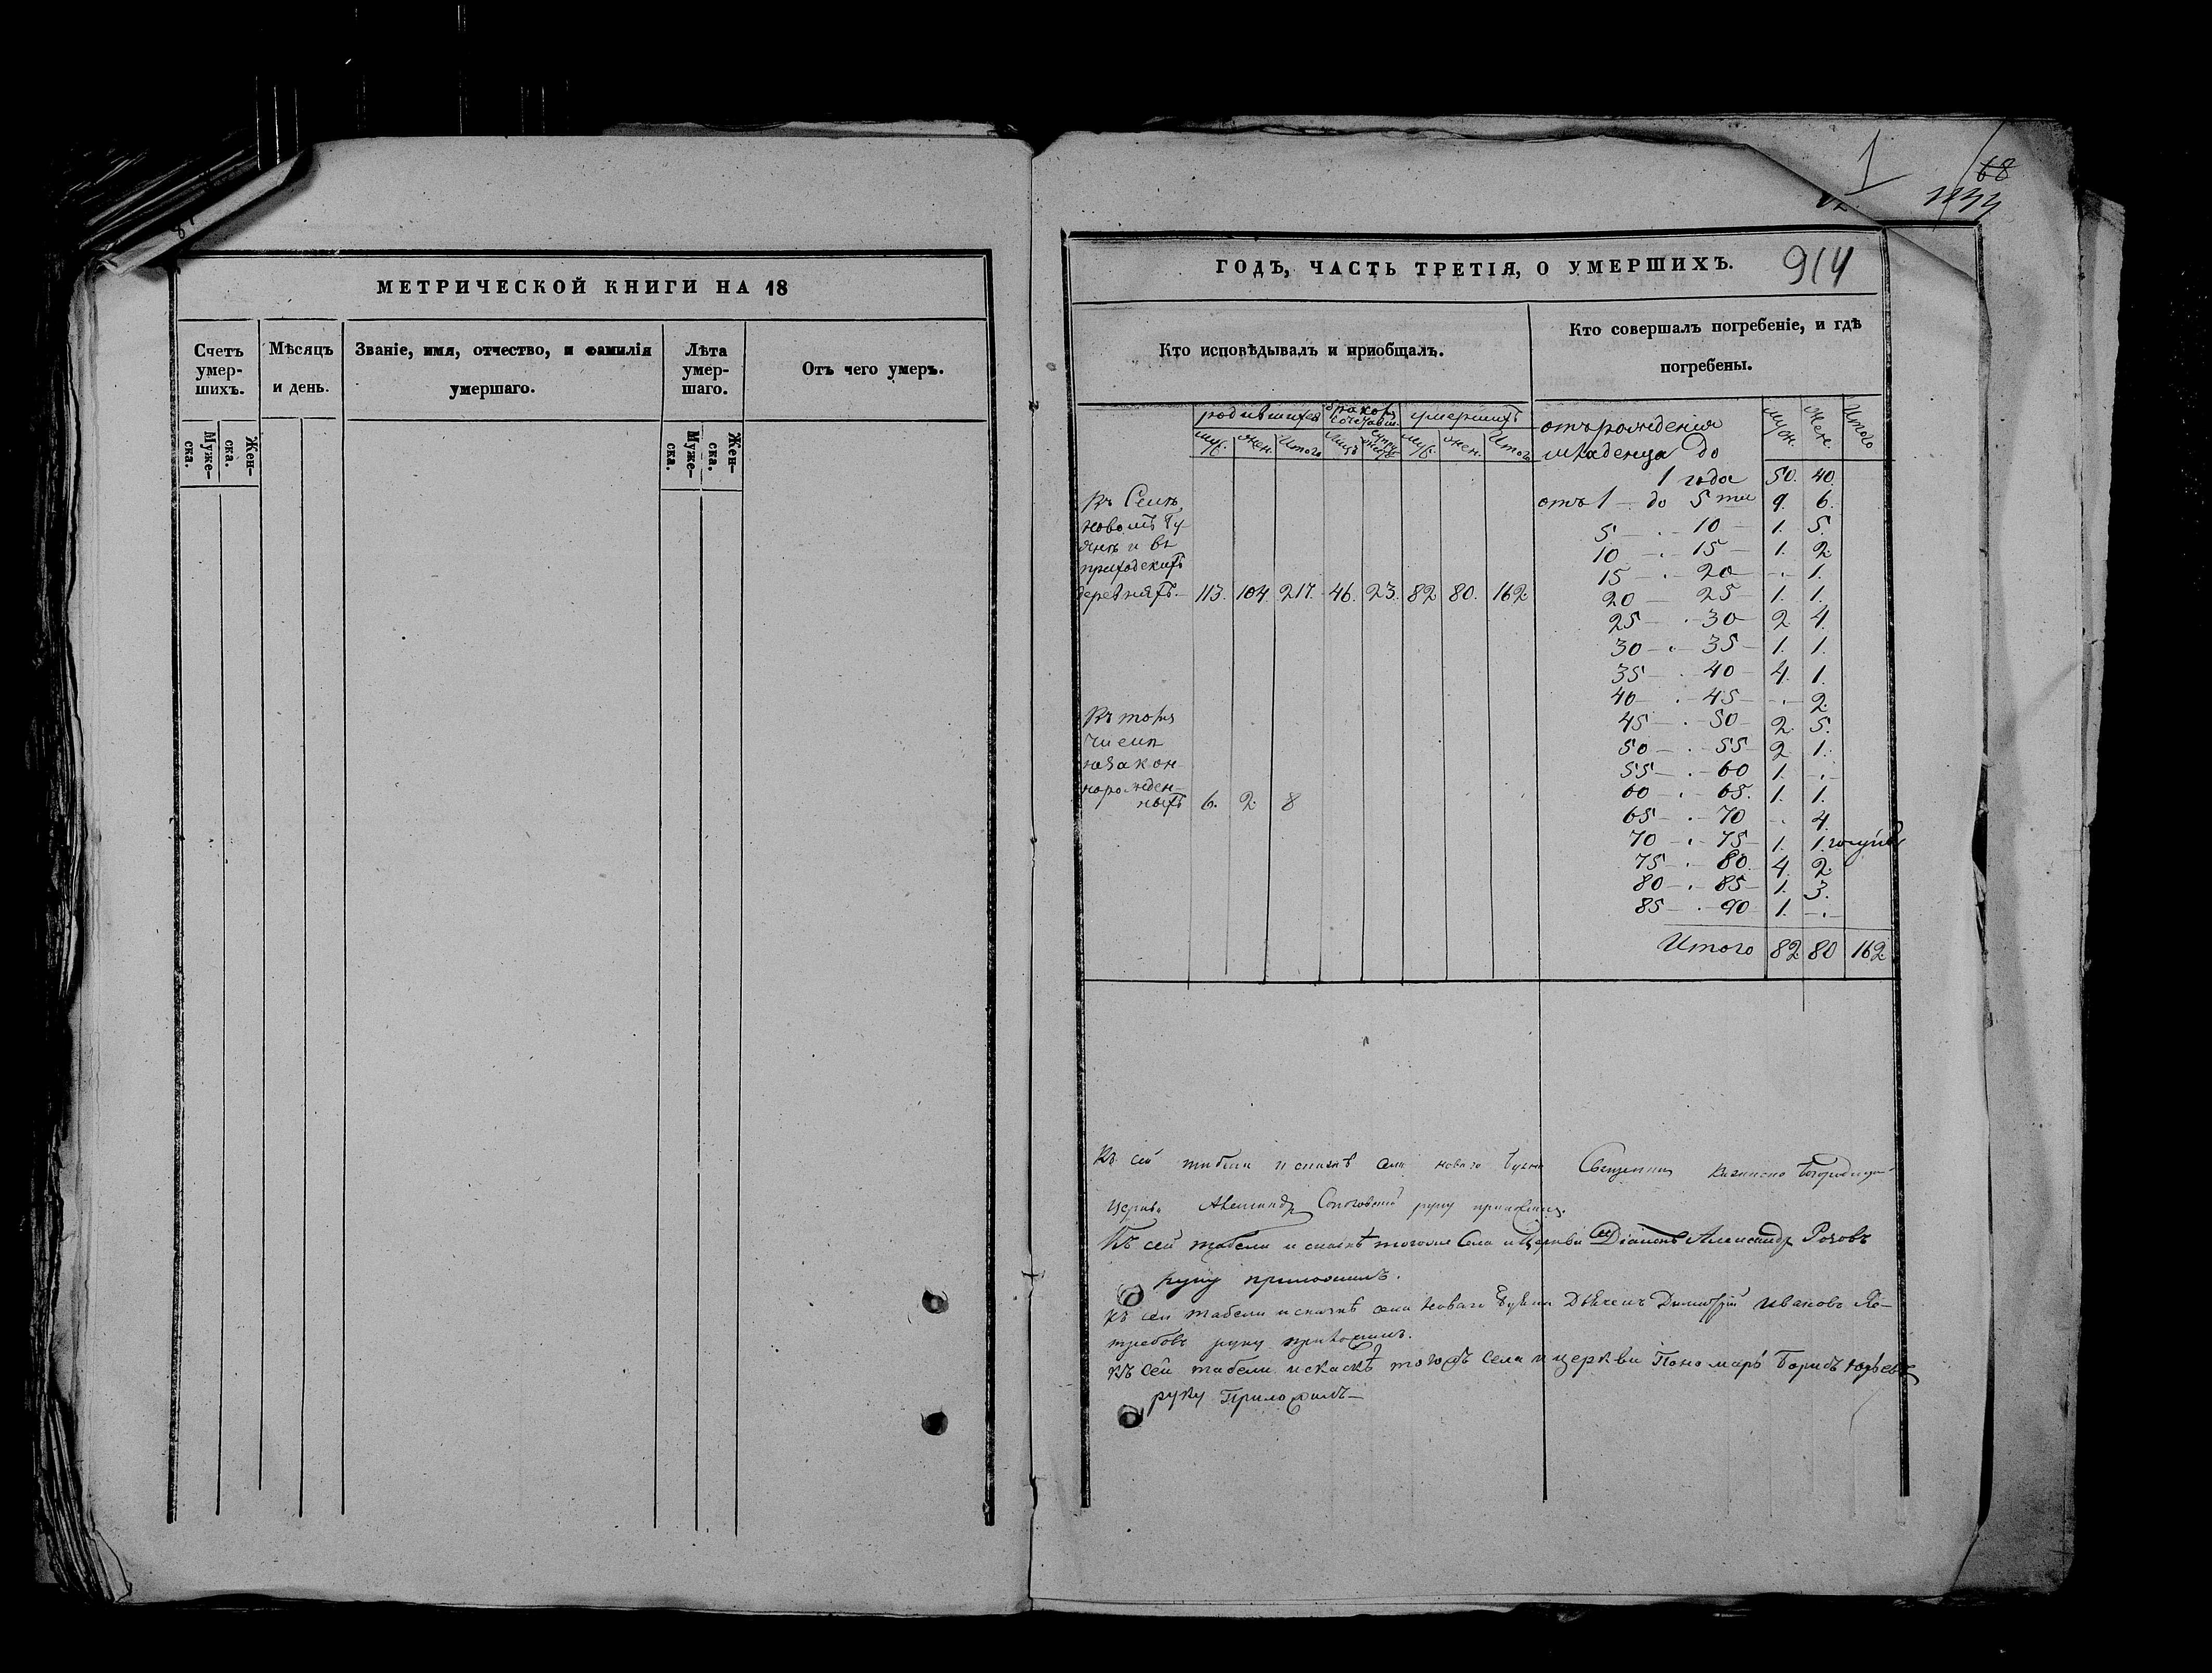 МЕТРИЧЕСКОЙ КНИГИ НА 18
Счетъ умер-шихъ.
Мѣсяцъ и день.
Званіе, имя, отчество, и фамилія умершаго.
Лѣта умер-шаго.
Отъ чего умеръ.
Муже-ска.
Жен-ска.
Муже-ска.
Жен-ска.
1
68
ГОДЪ, ЧАСТЬ ТРЕТІЯ, О УМЕРШИХЪ. 914
Кто исповѣдывалъ и пріобщалъ.
Кто совершалъ погребеніе, и гдѣ
погребены.
родившихся
умершихъ
Муж. Жен. Итого
Муж. Жен. Итого
Въ Селѣ
Новомъ
и въ
приходскихъ
деревняхъ. 113. 104. 217. 46. 23. 82 80. 162
Въ томъ
числѣ
незакон
норожден-
ныхъ 6. 2. 8
отъ рожденія Муж. Жен. Итого
младенца до
1 года 50. 40.
отъ 1 до 5 ти 9. 6.
5 — 10 — 1. 5.
10 — 15 — 1. 2
15 — 20 — - 1.
20 — 25 — 1. 1.
25 — 30 2 4.
30 — 35 — 1. 1.
35 — 40 — 4. 1.
40 — 45 — - 2.
45 — 50 2. 5.
50 — 55 2 1.
55 — 60 1. -
60 — 65. 1. 1.
65 — 70 - 4.
70 — 75 — 1. 1.
75 — 80. 4. 2.
80 — 85 — 1. 3.
85 — 90 1. -
Итого 82 80 162
Къ сей табели и села новаго
Александр руку приложилъ.
Къ сей табели и тогоже Села и Церкви Діаконъ Александръ Розовъ
руку приложилъ.
Къ сей табели и села новаго Дьячекъ Димитрій Ивановъ
руку приложилъ.
Къ сей табели и тогожъ Села и церкви Пономарь Борисъ
руку Приложилъ